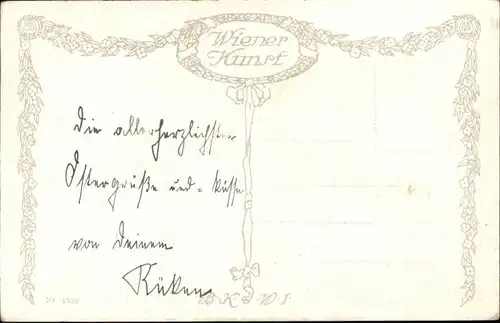 Wiener
Kunst
Die allerherzlichsten
Ostergrüße und = küsse
von Deinem
B.K.W.I.
Nr.